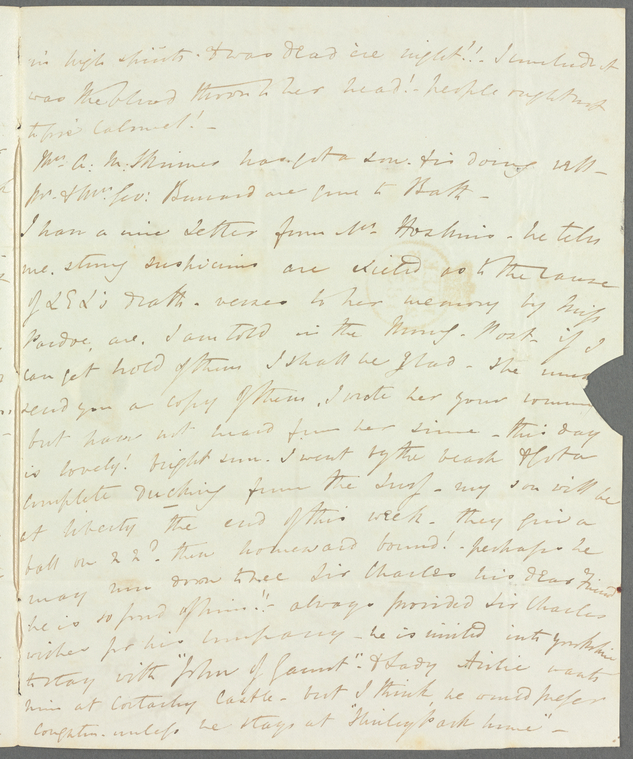 in high spirits. & was dead ere night!! - I conclude it
was the blood thrown to her head! - people ought not
to give Calomel! -
Mrs. A: M: Skinner has got a son. & is doing well -
Mr. & Mrs. Geo: Barnard are gone to Bath -
I have a nice letter from Mr. Hoskins - he tells
me. strong suspicions are excited as to the cause
of L E L's death - verses to her memory by Miss
Pardoe, are. I am told in the Morng. Post - if I
can get hold of them I shall be glad - She must
send you a copy of them. I wrote her your
but have not heard from her since - this day
is lovely! bright sun. I went by the beach & got a
complete Ducking from the surf - my son will be
at liberty the end of this week - they give a
ball on 22d. then homeward bound! - perhaps he
may run down to see Sir Charles his dear Friend
he is so fond of him!! - always provided Sir Charles
wishes for his company - he is invited into Yorkshire
to stay with "John of Gaunt" - & Lady Airlie wants
him at Cortachy Castle - but I think he would prefer
unless he stays at "Shirley Park home" -